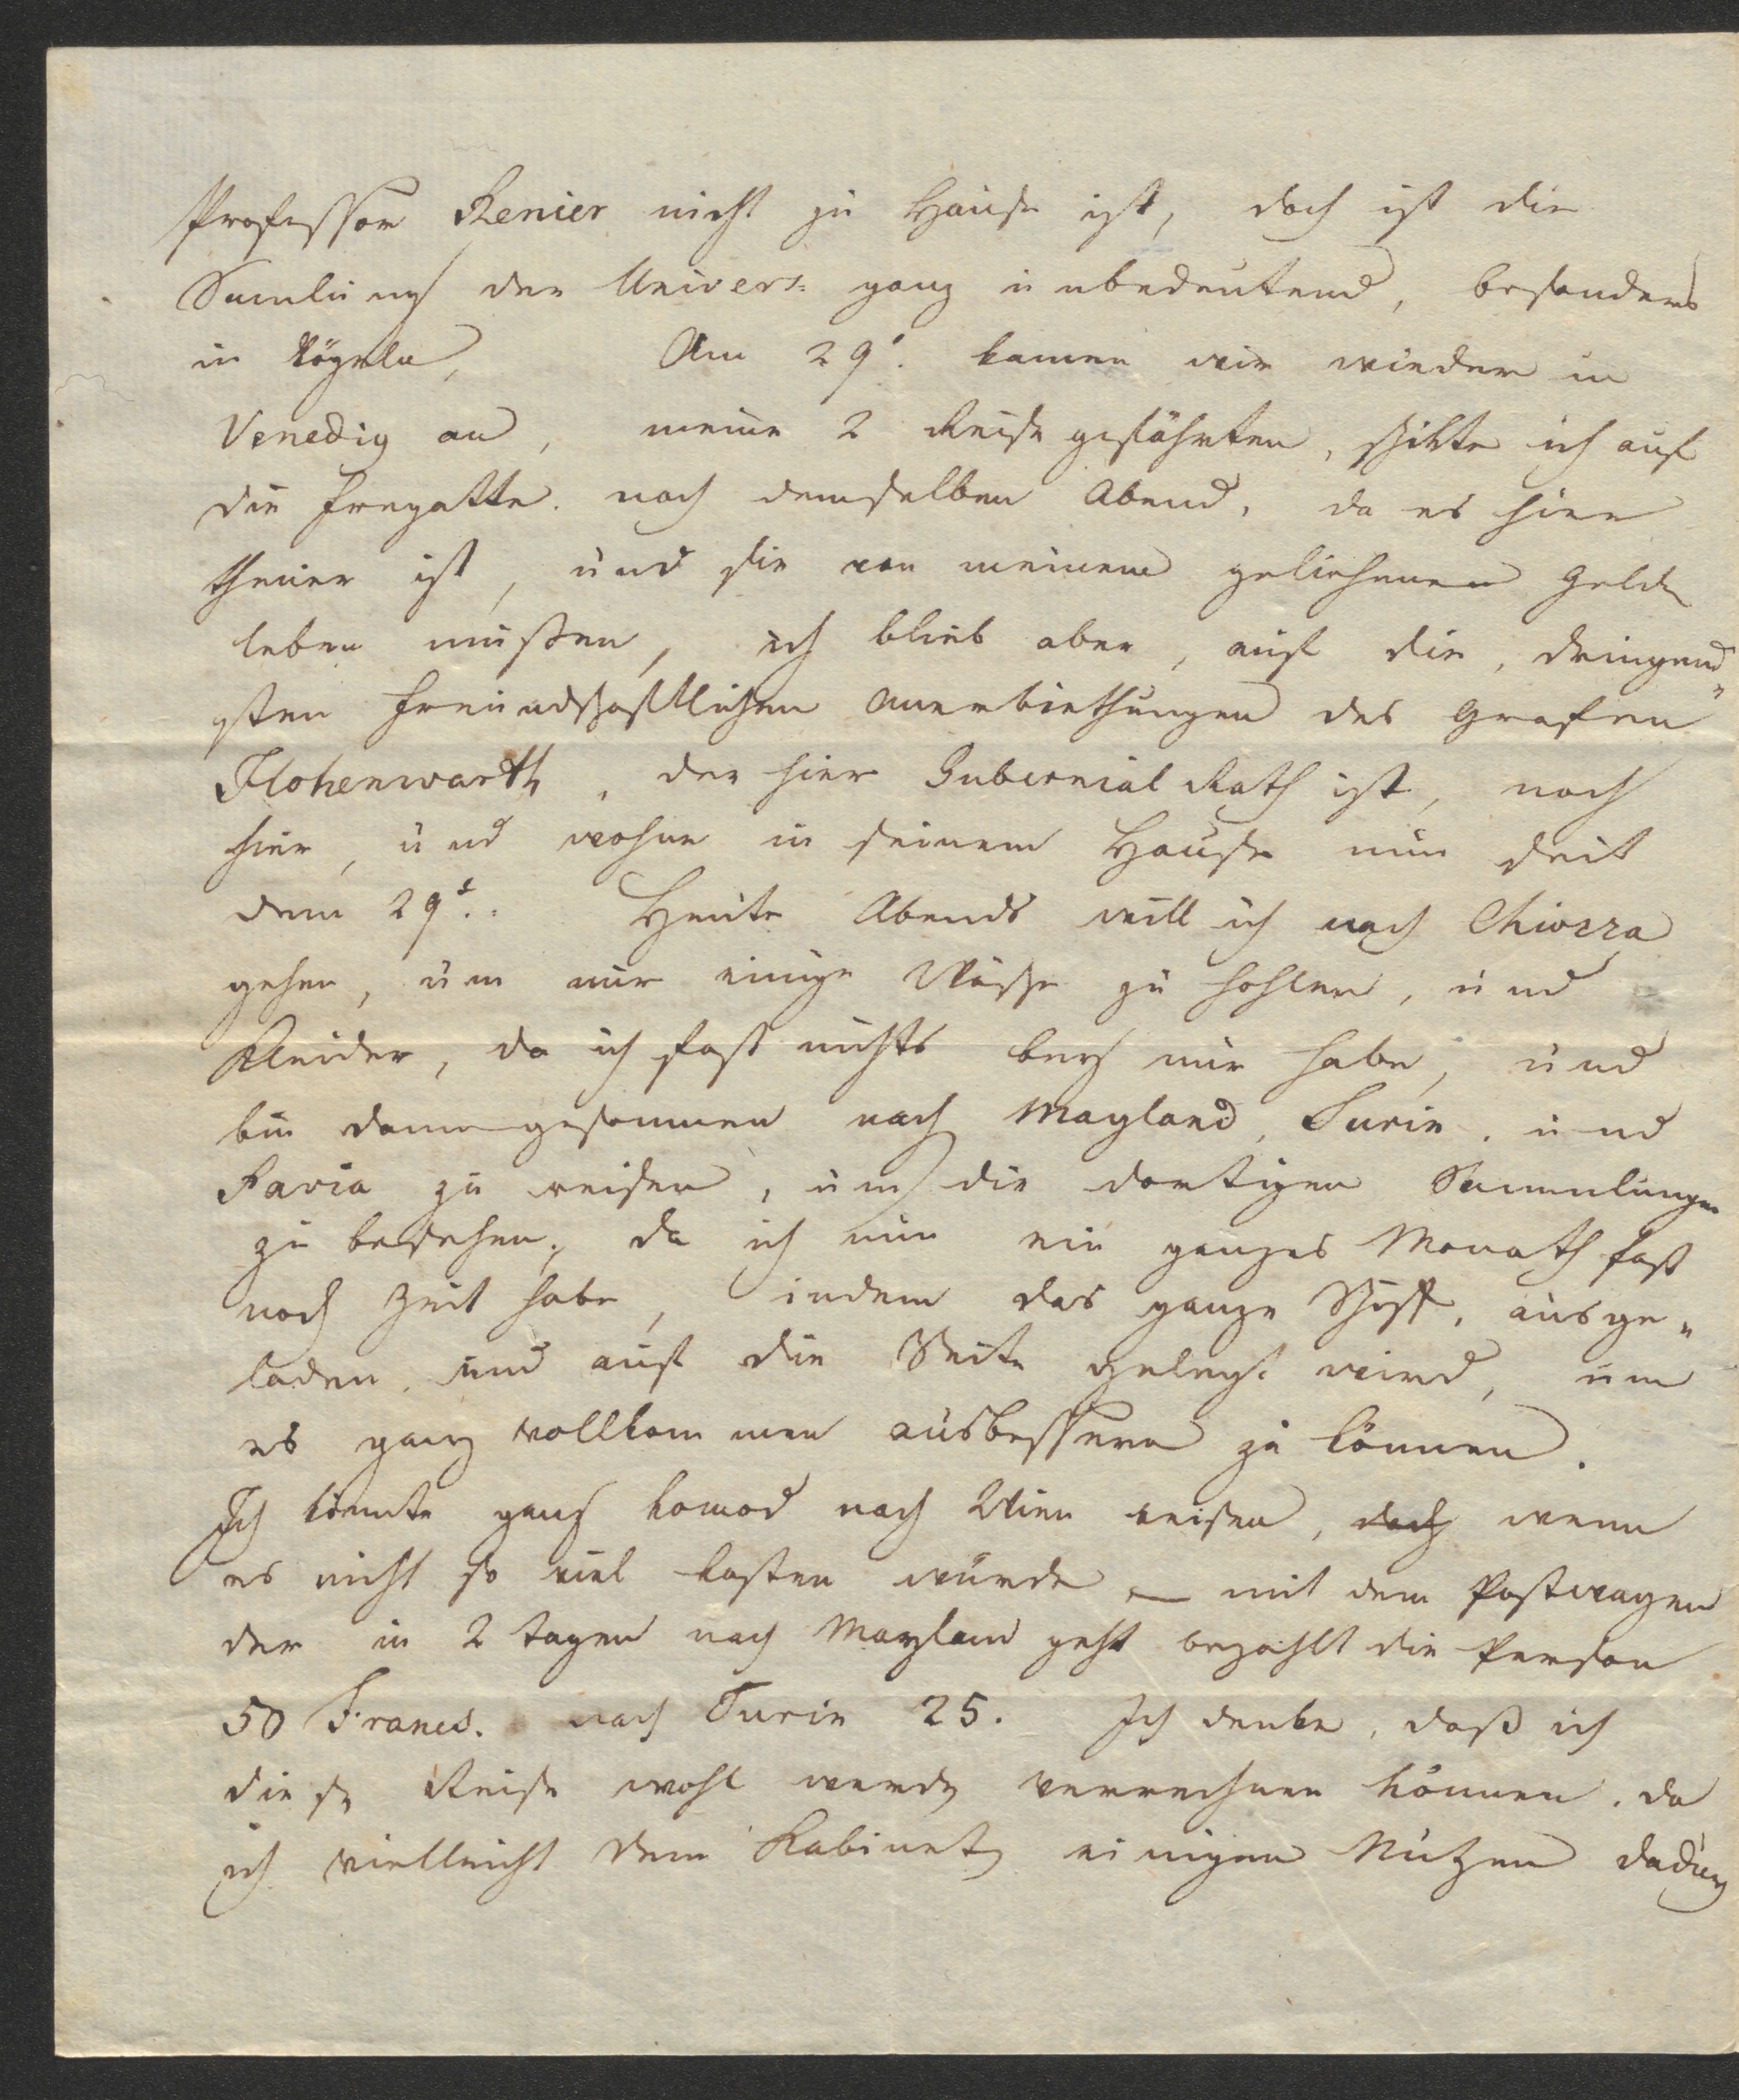 Professor Renier nicht zu Hause ist, doch ist die
Samlung der Univers: ganz unbedeutend, besonders
in Vögeln, Am 29t. kamen wir wieder in
Venedig an, meine 2 Reise gefährten, schikte ich auf
die Fregatte noch demselben Abend, da es hier
theuer ist, und sie von meinem geliehenen Gelde
leben mußten, ich blieb aber, auf die, dringend„
sten freundschaftlichen Anerbiethungen des Grafen
Hohenwarth, der hier Gubernial Rath ist, noch
hier, und wohne in seinem Hause nun seit
dem 29t.. Heute Abends will ich nach Chiozza
gehen, um mir einige Wäsche zu hohlen, und
Kleider, da ich fast nichts bey mir habe, und
bin dann gesonnen nach Mayland, Turin, und
Pavia zu reisen, um die dortigen Sammlungen
zu besehen, da ich nun ein ganzes Monath fast
noch Zeit habe, indem das ganze Schiff, ausge„
laden, und auf die Seite gelegt wird, um
es ganz vollkommen ausbessern zu können.
Ich könnte ganz komod nach Wien reisen, doch wenn
es nicht so viel kosten würde – mit dem Postwagen
der in 2 Tagen nach Maylan geht bezahlt die Person
50 Francs. nach Turin 25. Ich denke, daß ich
diese Reise wohl werde verrechnen können, da
ich vielleicht dem Kabinet einigen Nutzen dadurch